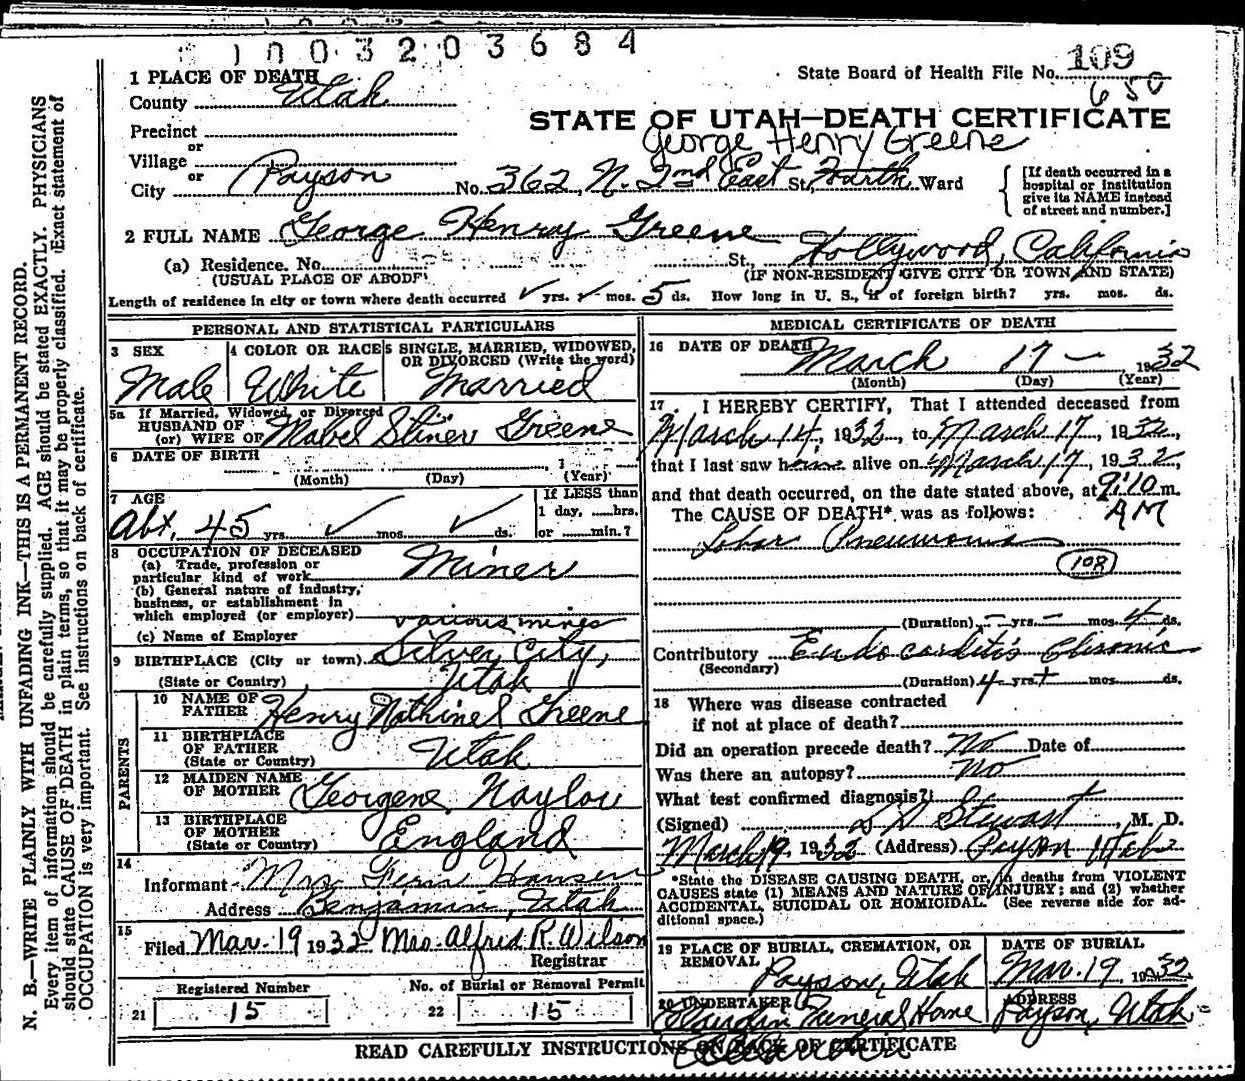 1003203684
State Board of Health File No. 109
650
1 PLACE OF DEATH
County Utah
STATE OF UTAH—DEATH CERTIFICATE
George Henry Greene
Precinct
or
Village
or
City Payson No. 362 N. 2nd East St. Fourth Ward
[If death occurred in a hospital or institution give its NAME instead of street and number.]
2 FULL NAME George Henry Greene
(a) Residence. No. St. Hollywood, California
(USUAL PLACE OF ABODE) (IF NON-RESIDENT GIVE CITY OR TOWN AND STATE)
Length of residence in city or town where death occurred ✓ yrs. ✓ mos. 5 ds. How long in U. S., if of foreign birth? yrs. mos. ds.
PERSONAL AND STATISTICAL PARTICULARS
3 SEX Male
4 COLOR OR RACE White
5 SINGLE, MARRIED, WIDOWED, OR DIVORCED (Write the word) Married
5a If Married, Widowed, or Divorced
HUSBAND OF
(or) WIFE OF Mabel Stiner Greene
6 DATE OF BIRTH , 1
(Month) (Day) (Year)
7 AGE
Abt. 45 yrs. ✓ mos. ✓ ds.
If LESS than
1 day, hrs.
or min.?
8 OCCUPATION OF DECEASED
(a) Trade, profession or
particular kind of work Miner
(b) General nature of industry,
business, or establishment in
which employed (or employer) various mines
(c) Name of Employer
9 BIRTHPLACE (City or town) Silver City,
(State or Country) Utah
PARENTS
10 NAME OF FATHER Henry Nathinel Greene
11 BIRTHPLACE OF FATHER (State or Country) Utah
12 MAIDEN NAME OF MOTHER Georgene Naylor
13 BIRTHPLACE OF MOTHER (State or Country) England
14
Informant Mrs Fern Hansen
Address Benjamin, Utah
15
Filed Mar. 19 1932 Mrs. Alfred R. Wilson
Registrar
Registered Number
21 15
No. of Burial or Removal Permit
22 15
MEDICAL CERTIFICATE OF DEATH
16 DATE OF DEATH March 17 — 1932
(Month) (Day) (Year)
17. I HEREBY CERTIFY, That I attended deceased from
March 14, 1932, to March 17, 1932,
that I last saw him alive on March 17, 1932,
and that death occurred, on the date stated above, at 9:10 m.
The CAUSE OF DEATH* was as follows: AM
Lobar Pneumonia
108
(Duration) — yrs. — mos. 4 ds.
Contributory Endocarditis Chronic
(Secondary)
(Duration) 4 yrs. + mos. ds.
18 Where was disease contracted
if not at place of death?
Did an operation precede death? No Date of
Was there an autopsy? No
What test confirmed diagnosis?
(Signed) Stewart, M. D.
March 19 1932 (Address) Payson Utah
*State the DISEASE CAUSING DEATH, or, in deaths from VIOLENT
CAUSES state (1) MEANS AND NATURE OF INJURY; and (2) whether
ACCIDENTAL, SUICIDAL OR HOMICIDAL. (See reverse side for ad-
ditional space.)
19 PLACE OF BURIAL, CREMATION, OR REMOVAL Payson, Utah
DATE OF BURIAL Mar. 19, 1932
20 UNDERTAKER Funeral Home
ADDRESS Payson, Utah
READ CAREFULLY INSTRUCTIONS ON BACK OF CERTIFICATE
N. B.—WRITE PLAINLY WITH UNFADING INK—THIS IS A PERMANENT RECORD.
Every item of information should be carefully supplied. AGE should be stated EXACTLY. PHYSICIANS
should state CAUSE OF DEATH in plain terms, so that it may be properly classified. Exact statement of
OCCUPATION is very important. See instructions on back of certificate.